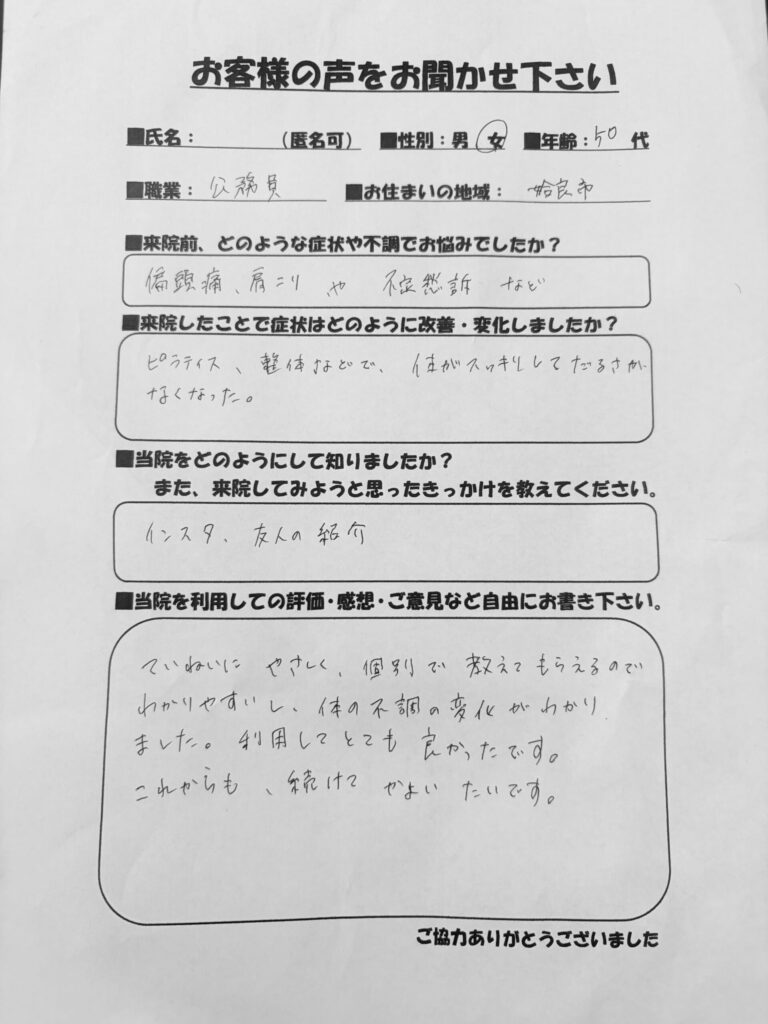 お客様の声をお聞かせ下さい
■氏名： （匿名可） ■性別：男 女 ■年齢：50 代
■職業：公務員 ■お住まいの地域：姶良市
■来院前、どのような症状や不調でお悩みでしたか？
偏頭痛、肩こり や 不定愁訴 など
■来院したことで症状はどのように改善・変化しましたか？
ピラティス、整体などで、体がスッキリしてだるさが
なくなった。
■当院をどのようにして知りましたか？
また、来院してみようと思ったきっかけを教えてください。
インスタ、友人の紹介
■当院を利用しての評価・感想・ご意見など自由にお書き下さい。
ていねいに やさしく、個別で 教えてもらえるので
わかりやすいし、体の不調の変化がわかり
ました。利用してとても 良かったです。
これからも、続けて かよい たいです。
ご協力ありがとうございました